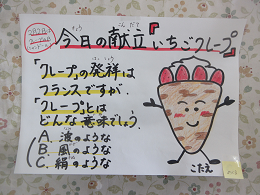 今日の献立『いちごクレープ』
「クレープ」の発祥は
フランスですが、
「クレープ」とは
どんな意味でしょう
A. 波のような
B. 風のような
C. 絹のような
こたえ